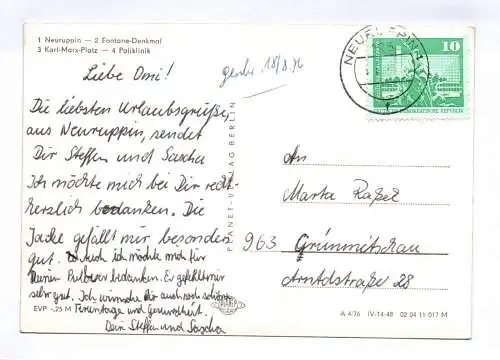 1 Neuruppin — 2 Fontane-Denkmal
3 Karl-Marx-Platz — 4 Poliklinik
Liebe Omi!
Die liebsten Urlaubsgrüße
aus Neuruppin, sendet
Dir Steffen und Sascha
Ich möchte mich bei Dir recht
herzlich bedanken. Die
Jacke gefällt mir besonders
gut. Auch ich möchte mich für
Deinen Pullover bedanken. Er gefällt mir
sehr gut. Ich wünsche dir auch noch schöne
Ferientage und Gesundheit.
Dein Steffen und Sascha
EVP -,25 M
18/8.76
PLANET-VERLAG BERLIN
NEURUPPIN 1
10
DEUTSCHE DEMOKRATISCHE REPUBLIK
An
Marta Raßel
963 Grünmitschau
Arndtstraße 28
A 4/76 IV-14-48 02 04 11 017 M